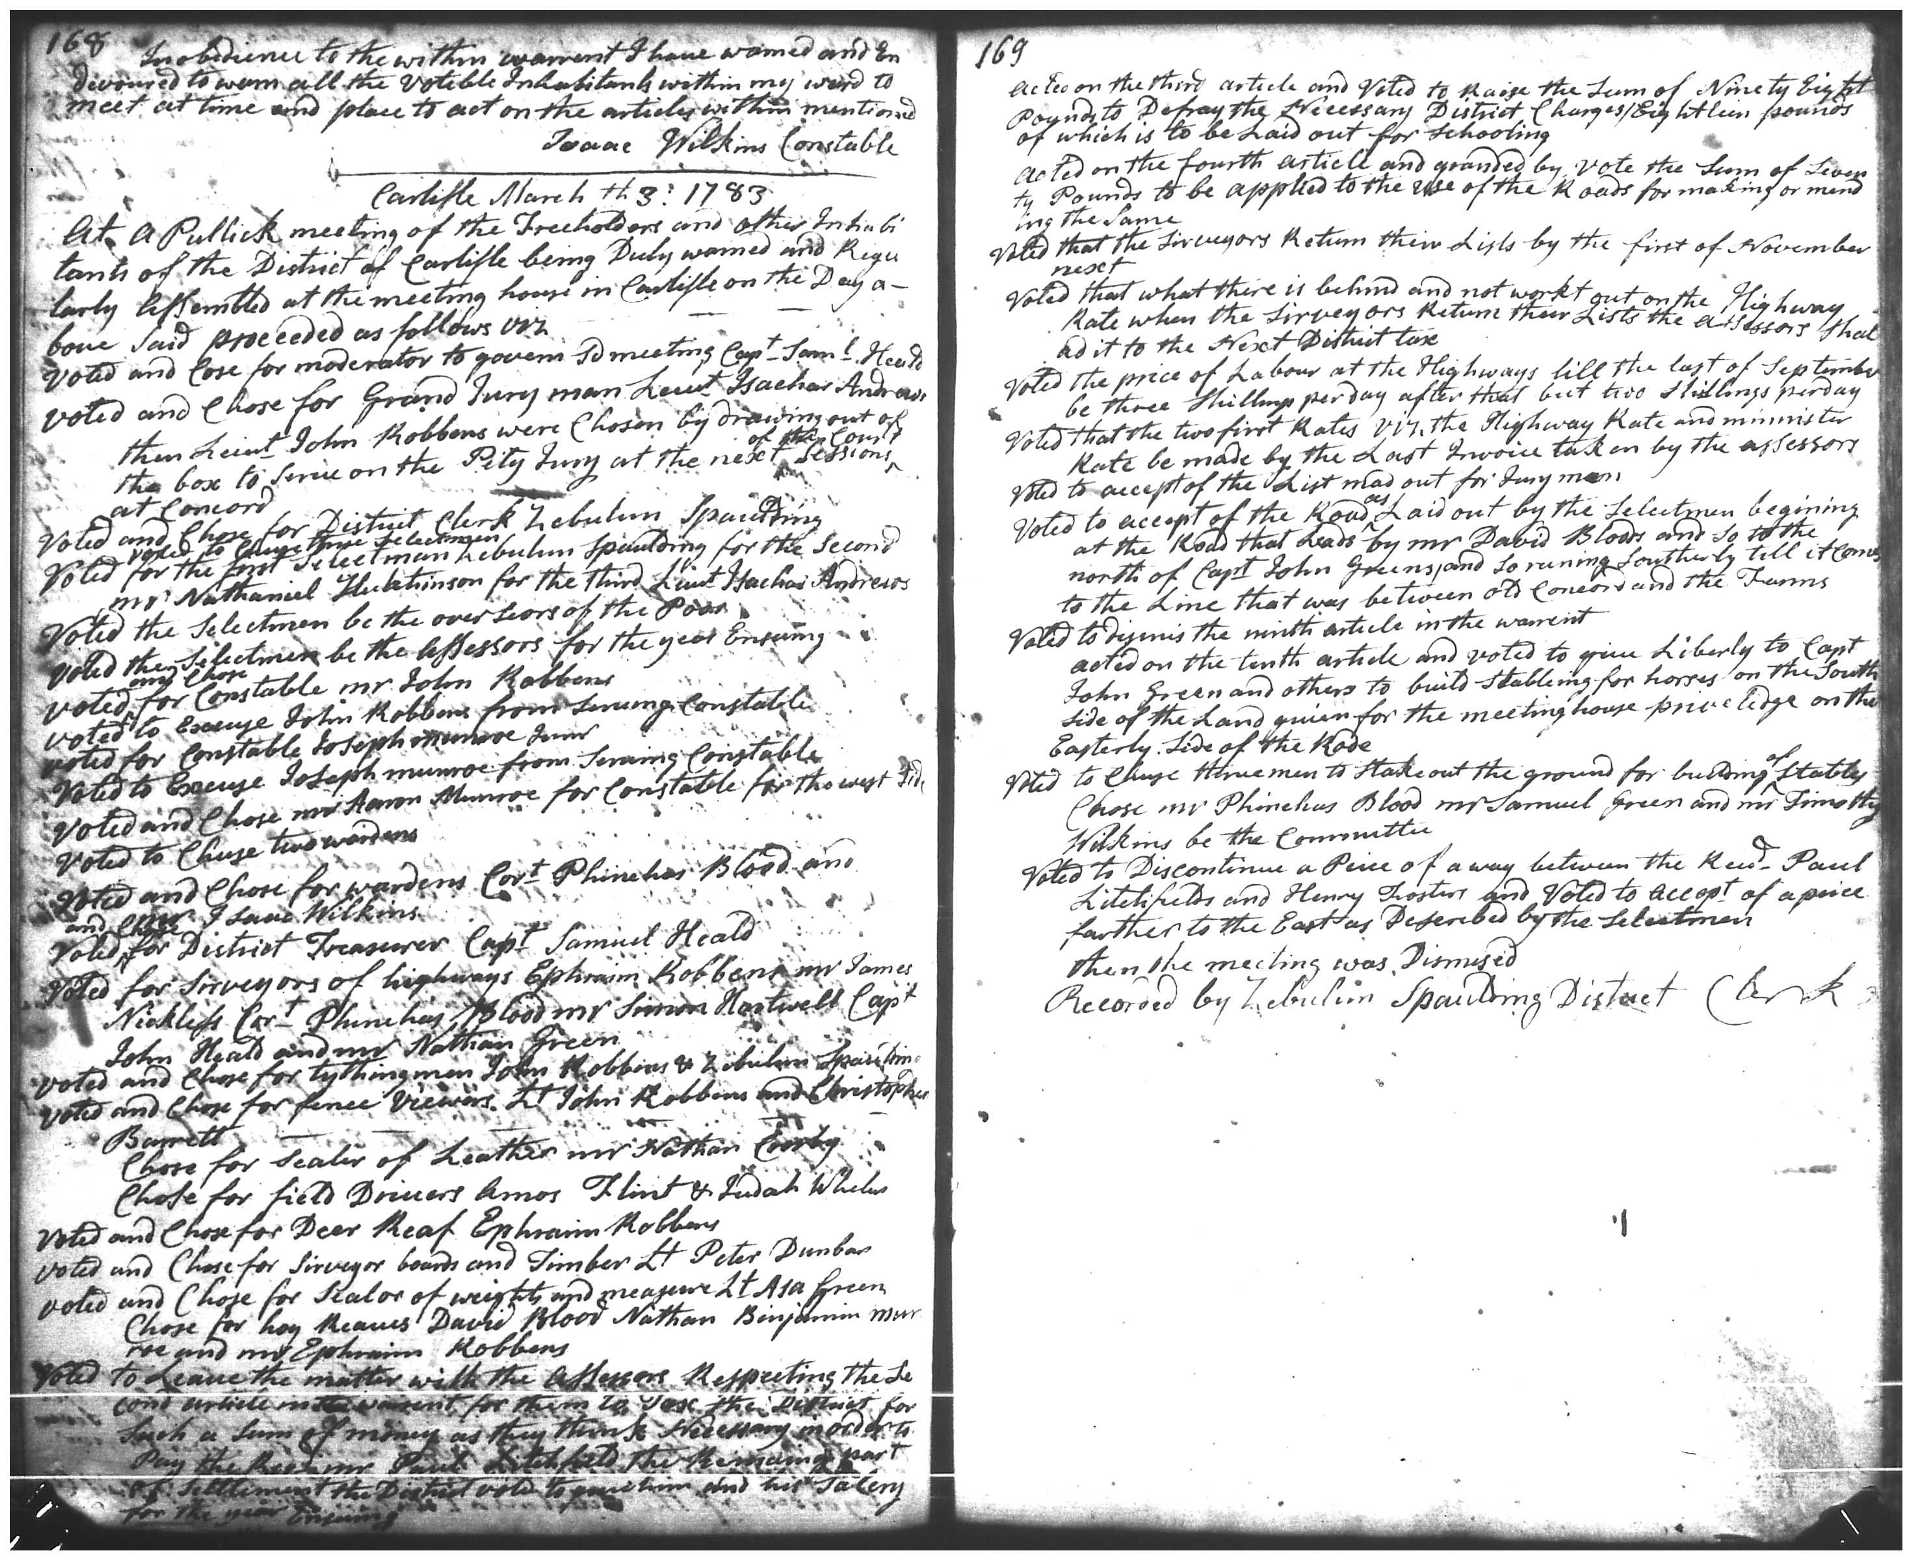 168
In obedience to the within warrent I have warned and En
divoured to warn all the Voteble Inhabitants within my ward to
meet at time and place to act on the articles within mentioned
Isaac Wilkins Constable
Carlisle March th 3: 1783
At A Publick meeting of the Freeholders and other Inhabi
tants of the District of Carlisle being Duly warned and Regu
larly Assembled at the meeting house in Carlisle on the Day a-
bove Said proceeded as follows viz
Voted and Cose for moderator to govern sd meeting Capt Saml. Heald
voted and Chose for Grand Jury man Leiut Isachar Andrews
then Leiut John Robbens were Chosen by drawing out of
the box to Serve on the Pety Jury at the next Sessions of the Court
at Concord
Voted and Chose for District Clerk Zebulun Spaulding
voted to Chuse three Selectmen
Voted for the first Selectman Zebulun Spaulding for the Second
mr Nathaniel Hutchinson for the third Leiut Isachar Andrews
Voted the Selectmen be the overseors of the Poor
Voted the Selectmen be the Assessors for the year Ensuing
voted and Chose for Constable mr John Robbens
voted to Excuse John Robbens from Serving Constable
voted for Constable Joseph Munroe Junr
Voted to Excuse Joseph munroe from Serving Constable
Voted and Chose mr Aaron Munroe for Constable for the west Side
Voted to Chuse two wardens
Voted and Chose for wardens Cort Phinehas Blood and
mr Isaac Wilkins
Voted and Chose for District Treasurer Capt Samuel Heald
Voted for Sirveyors of highways Ephraim Robbens mr James
Nickless Cort Phinehas Blood mr Simon Hartwell Capt
John Heald and mr Nathan Green
voted and Chose for tythingmen John Robbins & Zebulun Spaulding
voted and Chose for fence Viewers Lt John Robbens and Christopher
Barrett
Chose for Sealer of Leather mr Nathan Corby
Chose for field Drivers Amos Flint & Judah Wheler
Voted and Chose for Deer Reaf Ephraim Robbens
voted and Chose for Sirveyor boards and Timber Lt Peter Dunbar
voted and Chose for Sealor of weights and measure Lt Asa Green
Chose for hog Reaves David Blood Nathan Binjamin mun
roe and mr Ephraim Robbens
Voted to Leave the matter with the Assessors Respecting the Se
cond article in the warrent for them to Tax the District for
Such a Sum of money as they think Necessary in order to
Pay the Revd mr Paul Litchfield the Remaing part
of Settlement the District voted to give him and his Salery
for the year Ensuing
169
acted on the third article and Voted to Raise the Sum of Ninety Eight
Pounds to Defray the Necessary District Charges/Eightteen pounds
of which is to be Laid out for Schooling
acted on the fourth article and granded by vote the Sum of Seven
ty Pounds to be applied to the use of the Roads for making or mend
ing the Same
Voted that the Sirveyors Return their Lists by the first of November
next
Voted that what there is behind and not workt out on the Highway
Rate when the Sirveyors Return their Lists the assessors Shal
ad it to the Next District tax
Voted the price of Labour at the Highways till the last of September
be three Shillings per day after that but two Shillings per day
Voted that the two first Rates viz. the Highway Rate and minnister
Rate be made by the Last Invoice taken by the assessors
Voted to accept of the List mad out for Jury men
Voted to accept of the Road as Laid out by the Selectmen begining
at the Road that Leads by mr David Bloods and So to the
north of Capt John Greens, and So runing Southerly till it Coms
to the Line that was between old Concord and the Farms
Voted to dismis the ninth article in the warrent
acted on the tenth article and voted to give Liberty to Capt
John Green and others to build Stableing for horses on the South
Side of the Land given for the meeting house priveledge on the
Easterly Side of the Rode
Voted to Chuse three men to Stake out the ground for building of Stables
Chose mr Phinehas Blood mr Samuel Green and mr Timothy
Wilkins be the Committee
Voted to Discontinue a Peice of a way between the Revd Paul
Litchfields and Henry Fosters and Voted to accept of a peice
farther to the East as Described by the Selectmen
then the meeting was Dismised
Recorded by Zebulun Spaulding District Clerk